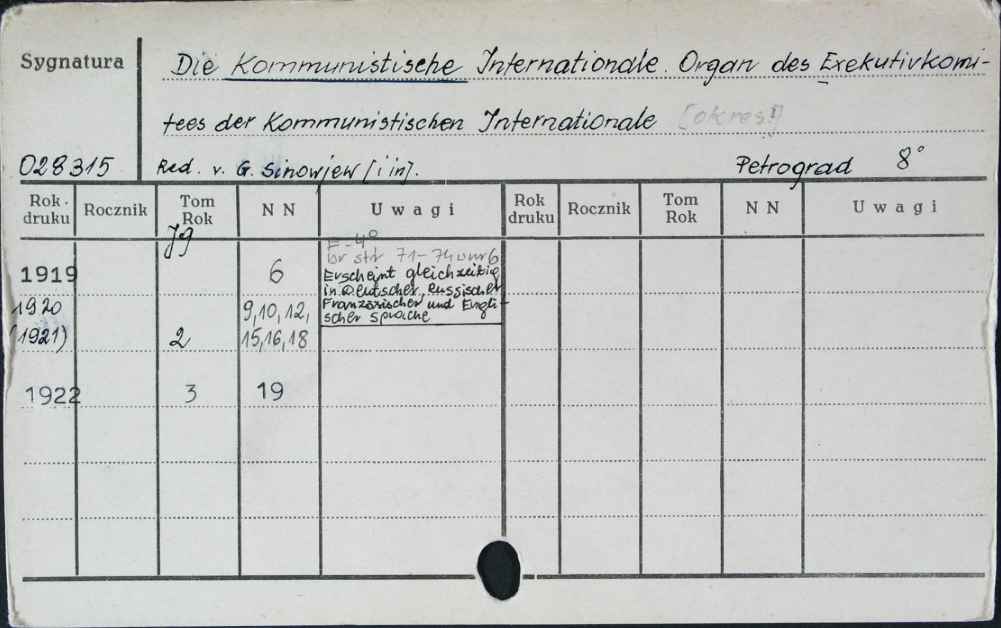 Sygnatura
Die Kommunistische Internationale. Organ des Exekutivkomi-
tees der Kommunistischen Internationale [okres!]
028315 Red. v. G. Sinowjew [i in]. Petrograd 8°
Rok druku Rocznik Tom Rok NN Uwagi Rok druku Rocznik Tom Rok NN Uwagi
Jg
F-4°
br str 71-74 w nr 6
1919 6 Erscheint gleichzeitig
in Deutscher, Russischer
1920 9,10,12, Französischer und Engli-
scher Sprache
(1921) 2 15,16,18
1922 3 19